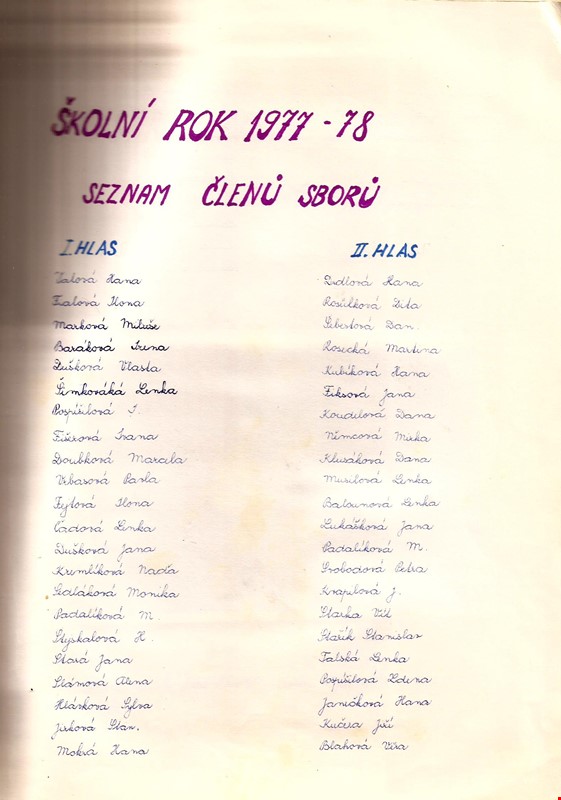 ŠKOLNÍ ROK 1977-78
SEZNAM ČLENŮ SBORŮ
I. HLAS
Valová Hana
Fialová Ilona
Marková Miluše
Baráková Irena
Dušková Vlasta
Šimkováká Lenka
Pospíšilová I.
Fišerová Ivana
Doubková Marcela
Vrbasová Pavla
Fytová Ilona
Čadová Lenka
Dušková Jana
Kremlíková Naďa
Galáková Monika
Padalíková M.
Styskalová H.
Stará Jana
Slámová Alena
Hlásková Sylva
Jirková Stan.
Mokrá Hana
II. HLAS
Hana
Dita
Šebestová Dan.
Rosecká Martina
Kubíková Hana
Fiksová Jana
Koudelová Dana
Němcová Mirka
Klusáková Dana
Musilová Lenka
Balounová Lenka
Lukášková Jana
Padalíková M.
Svobodová Petra
Krapilová J.
Starka Vít
Stařík Stanislav
Talská Lenka
Pospíšilová Zdena
Janíčková Hana
Kučera Jiří
Blahová Věra